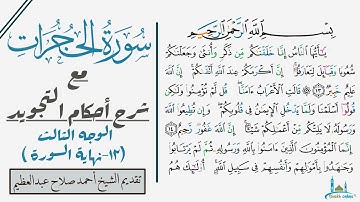 سورة الحجرات
مع
شرح أحكام التجويد
الوجه الثالث
(١٣-نهاية السورة)
تقديم الشيخ أحمد صلاح عبدالعظيم
بِسْمِ اللَّهِ الرَّحْمَٰنِ الرَّحِيمِ
يَا أَيُّهَا النَّاسُ إِنَّا خَلَقْنَاكُم مِّن ذَكَرٍ وَأُنثَىٰ وَجَعَلْنَاكُمْ
شُعُوبًا وَقَبَائِلَ لِتَعَارَفُوا إِنَّ أَكْرَمَكُمْ عِندَ اللَّهِ أَتْقَاكُمْ إِنَّ اللَّهَ
عَلِيمٌ خَبِيرٌ ١٣ قَالَتِ الْأَعْرَابُ آمَنَّا قُل لَّمْ تُؤْمِنُوا وَلَٰكِن
قُولُوا أَسْلَمْنَا وَلَمَّا يَدْخُلِ الْإِيمَانُ فِي قُلُوبِكُمْ وَإِن تُطِيعُوا اللَّهَ
وَرَسُولَهُ لَا يَلِتْكُم مِّنْ أَعْمَالِكُمْ شَيْئًا إِنَّ اللَّهَ غَفُورٌ رَّحِيمٌ ١٤
إِنَّمَا الْمُؤْمِنُونَ الَّذِينَ آمَنُوا بِاللَّهِ وَرَسُولِهِ ثُمَّ لَمْ يَرْتَابُوا
وَجَاهَدُوا بِأَمْوَالِهِمْ وَأَنفُسِهِمْ فِي سَبِيلِ اللَّهِ أُولَٰئِكَ هُمُ